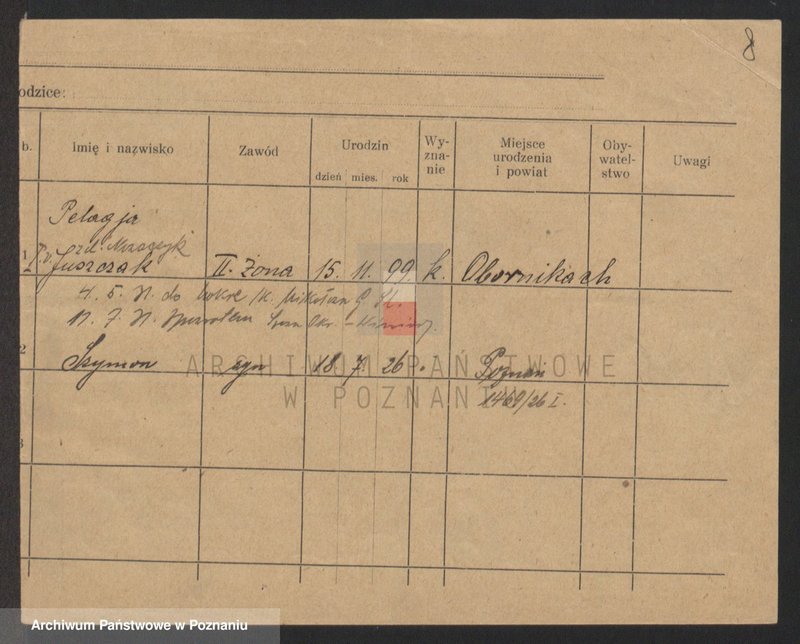 8
odzice:
b. Imię i nazwisko Zawód Urodzin dzień mies. rok Wy-zna-nie Miejsce urodzenia i powiat Oby-watel-stwo Uwagi
Pelagja
1 Juszczak II. żona 15. 11. 99 k. Obornikach
4. 5. do Mikołan
11. 7.
2 Szymon syn 18. 7. 26. Poznan
1469/26 I.
3
ARCHIWUM PAŃSTWOWE
W POZNANIU
Archiwum Państwowe w Poznaniu